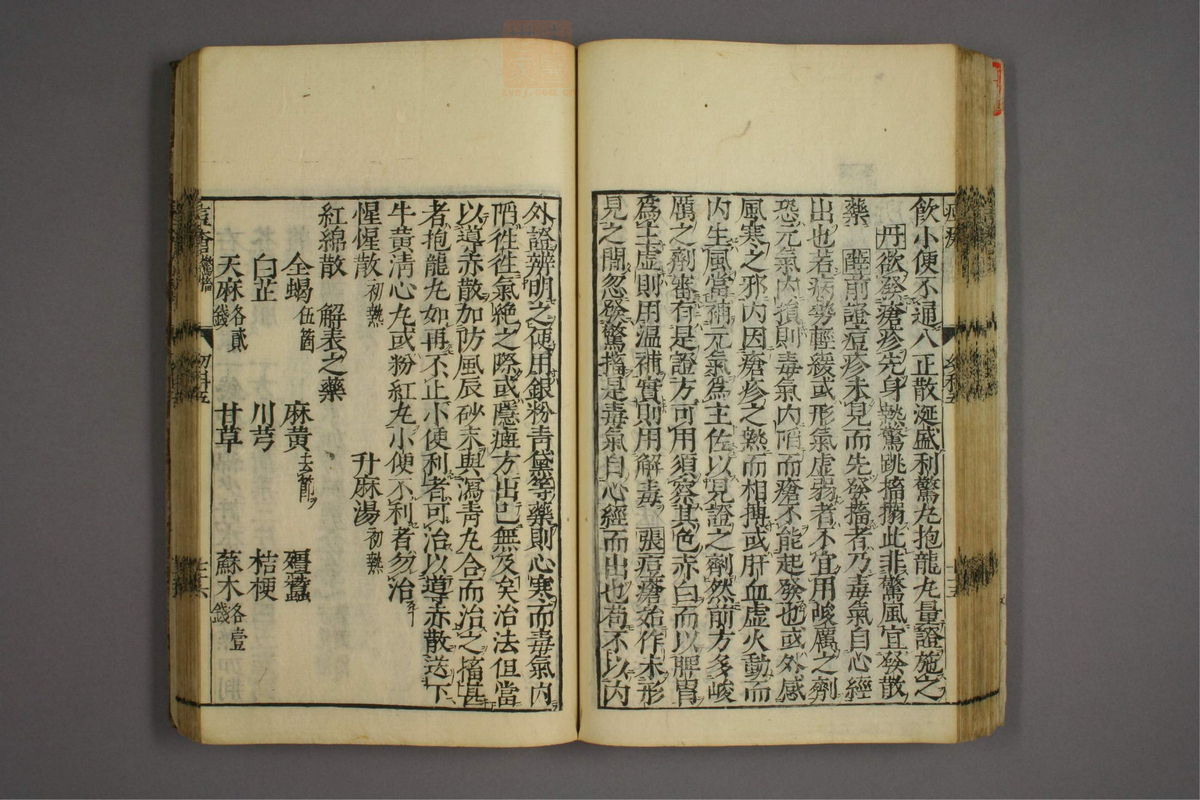 飲小便不通八正散涎盛利驚丸抱龍丸量證施之
丹欲發瘡疹先身熱驚跳搐搦此非驚風宜發散
藥 薛前證痘疹未見而先發搐者乃毒氣自心經
出也若病勢輕緩或形氣虛弱者不宜用峻厲之劑
恐元氣內損則毒氣內陷而瘡不能起發也或外感
風寒之邪內因瘡疹之熱而相搏或肝血虛火動而
內生風當補元氣為主佐以見證之劑然前方多峻
厲之劑審有是證方可用須察其色赤白而以脾胃
為主虛則用溫補實則用解毒 張痘瘡始作未形
見之間忽發驚搐是毒氣自心經而出也苟不以內
外證辨明之便用銀粉青黛等藥則心寒而毒氣內
陷徃徃氣絶之際或隱疵方出已無及矣治法但當
以導赤散加防風辰砂末與瀉青丸合而治之搐甚
者抱龍丸如再不止小便利者可治以導赤散送下
牛黃清心丸或粉紅丸小便不利者勿治
惺惺散初熱 升麻湯初熱
紅綿散 解表之藥
全蝎伍箇 麻黃去節 殭蠶
白芷 川芎 桔梗
天麻各貳錢 甘草 蘇木各壹錢